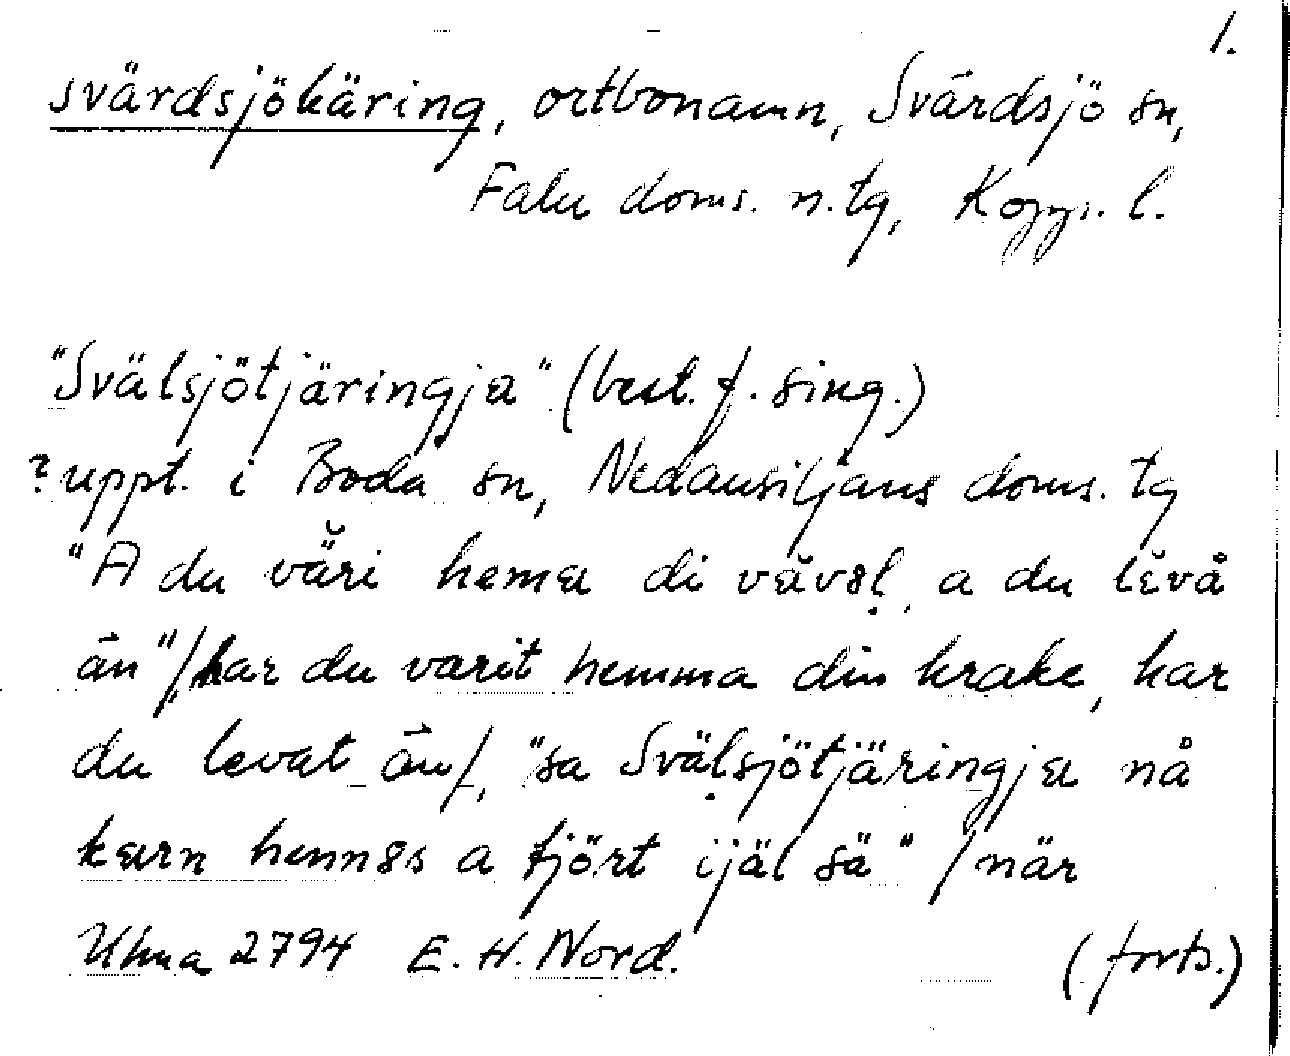 1.
svärdsjökäring, ortbonamn, Svärdsjö sn,
Falu doms. n. tg, Kopp. l.
"Svälsjötjäringja" (best. f. sing.)
? uppt. i Boda sn, Nedansiljans doms. tg
"A du väri hema di vävel, a du lévå
än" /har du varit hemma din krake, har
du levat än/, "sa Svälsjötjäringja nå
karn hennes a tjört ijäl sä" /när
Uhma 2794 E. H. Nord. (forts.)